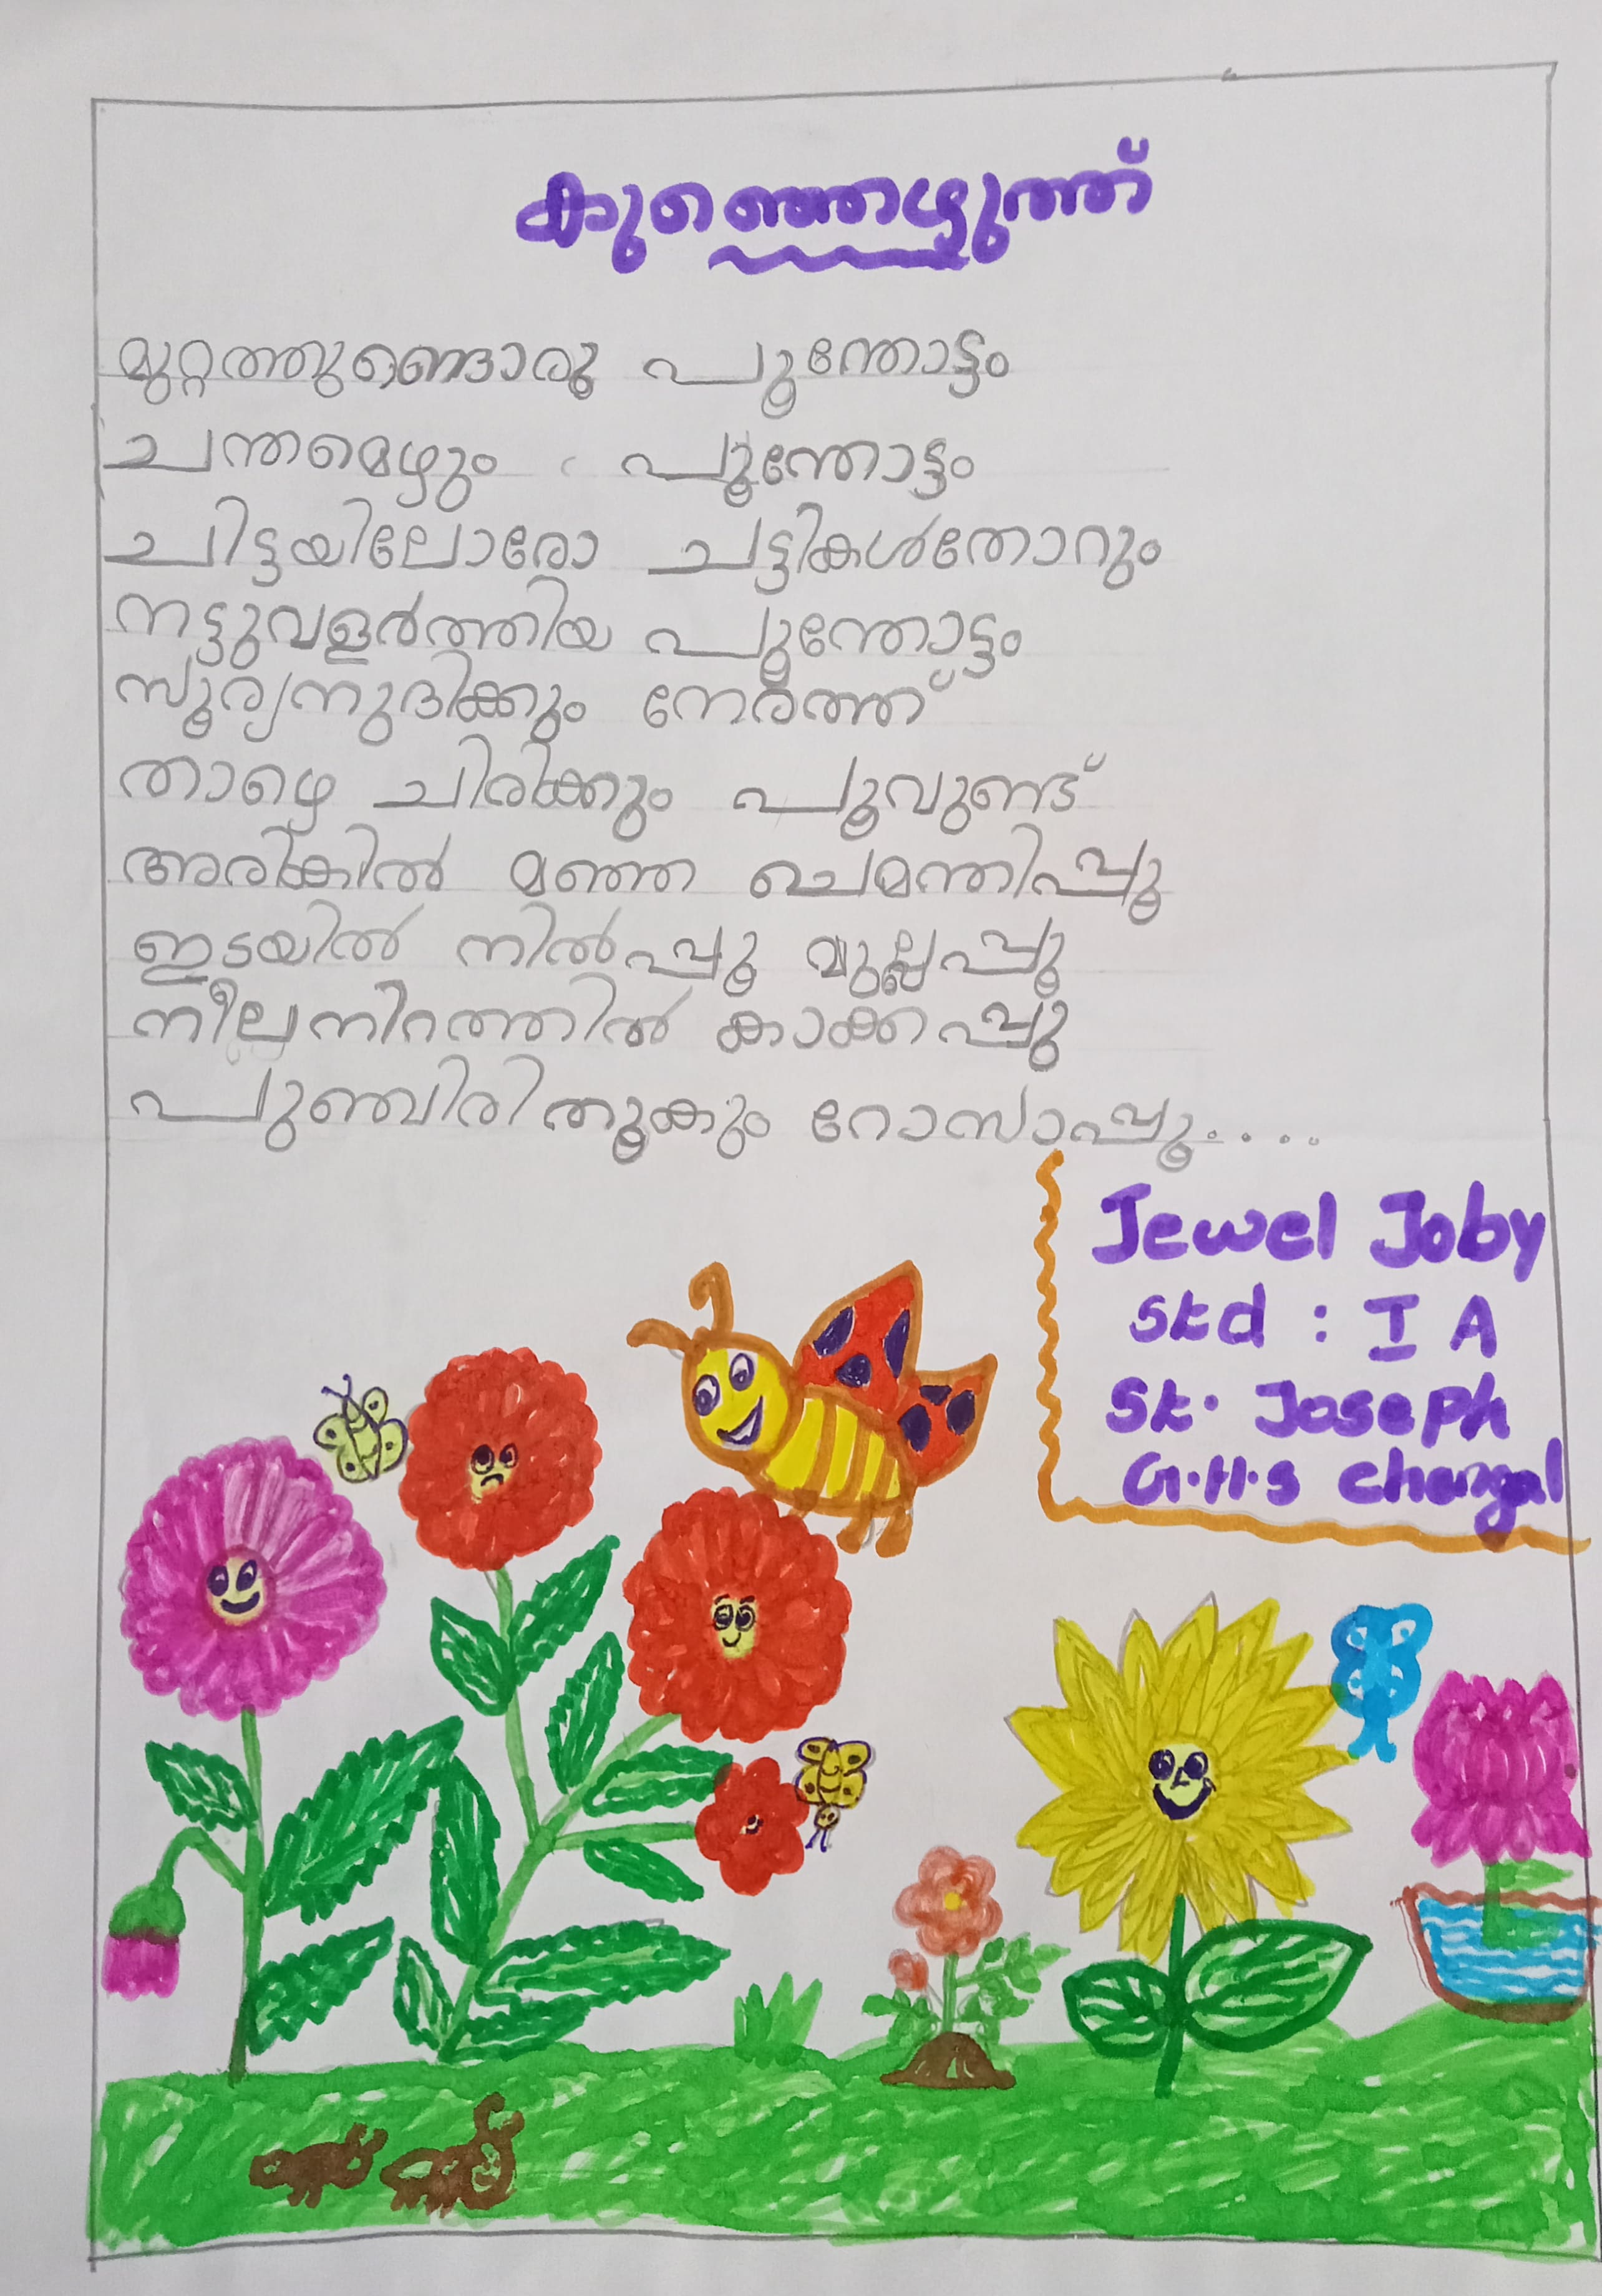 കുഞ്ഞെഴുത്ത്
മുറ്റത്തുണ്ടൊരു പൂന്തോട്ടം
ചന്തമെഴും പൂന്തോട്ടം
ചിട്ടയിലോരോ ചട്ടികൾതോറും
നട്ടുവളർത്തിയ പൂന്തോട്ടം
സൂര്യനുദിക്കും നേരത്ത്
താഴെ ചിരിക്കും പൂവുണ്ട്
അരികിൽ മഞ്ഞ ചെമന്തിപ്പൂ
ഇടയിൽ നിൽപ്പൂ മുല്ലപ്പൂ
നീലനിറത്തിൽ കാക്കപ്പൂ
പുഞ്ചിരി തൂകും റോസാപ്പൂ....
Jewel Joby
Std : I A
St. Joseph
G.H.S Changal